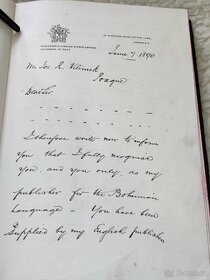 June 7. 1890
Mr Jos. R. Vilimek
Prague
Dear Sir
I therefore write now to inform
you that I fully recognise
you, and you only, as my
publisher for the Bohemian
language — You have been
supplied by my English publisher